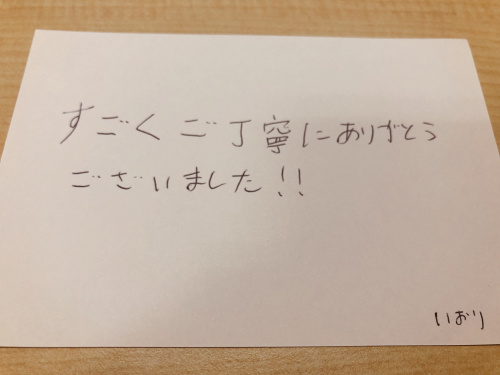 すごくご丁寧にありがとう
ございました!!
いおり